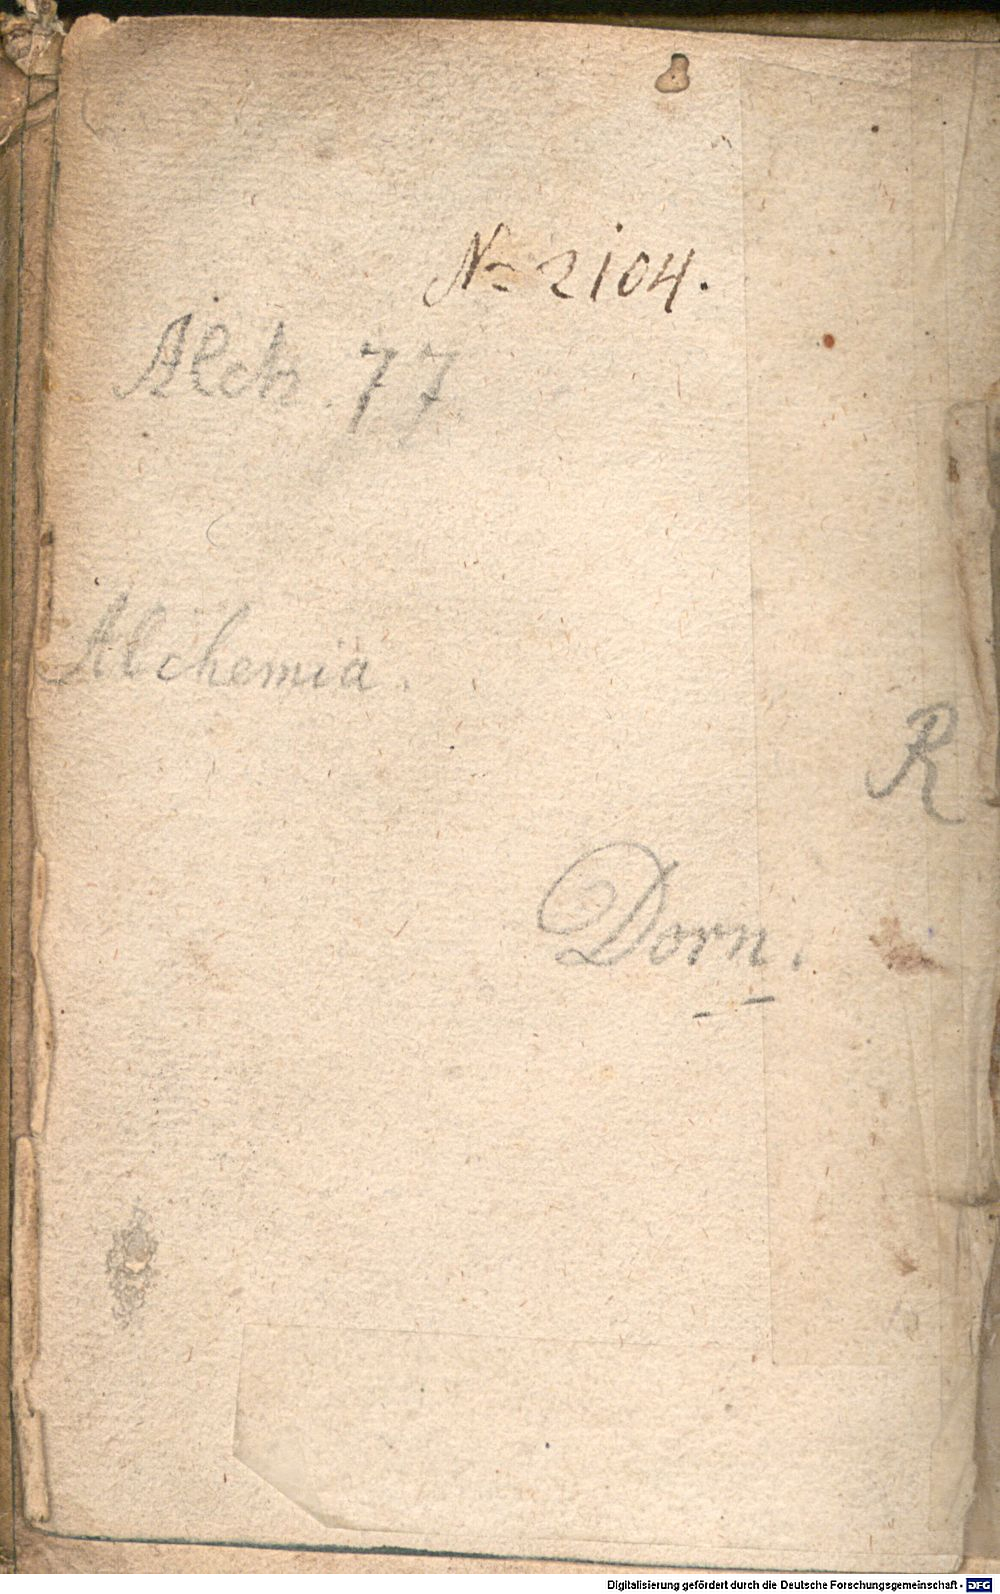 No 2104.
Alch. 77
Alchemia.
R
Dorn.
Digitalisierung gefördert durch die Deutsche Forschungsgemeinschaft - DFG